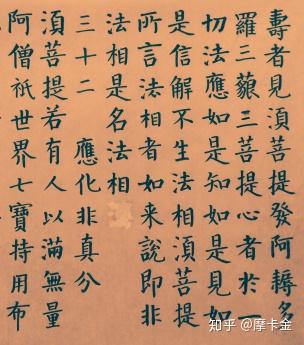 壽者見湏菩提發阿耨多
羅三藐三菩提心者於一
切法應如是知如是見如
是信解不生法相湏菩提
所言法相者如来說即非
法相是名法相
三十二 應化非真分
湏菩提若有人以滿無量
阿僧祇世界七寶持用布
知乎 @摩卡金